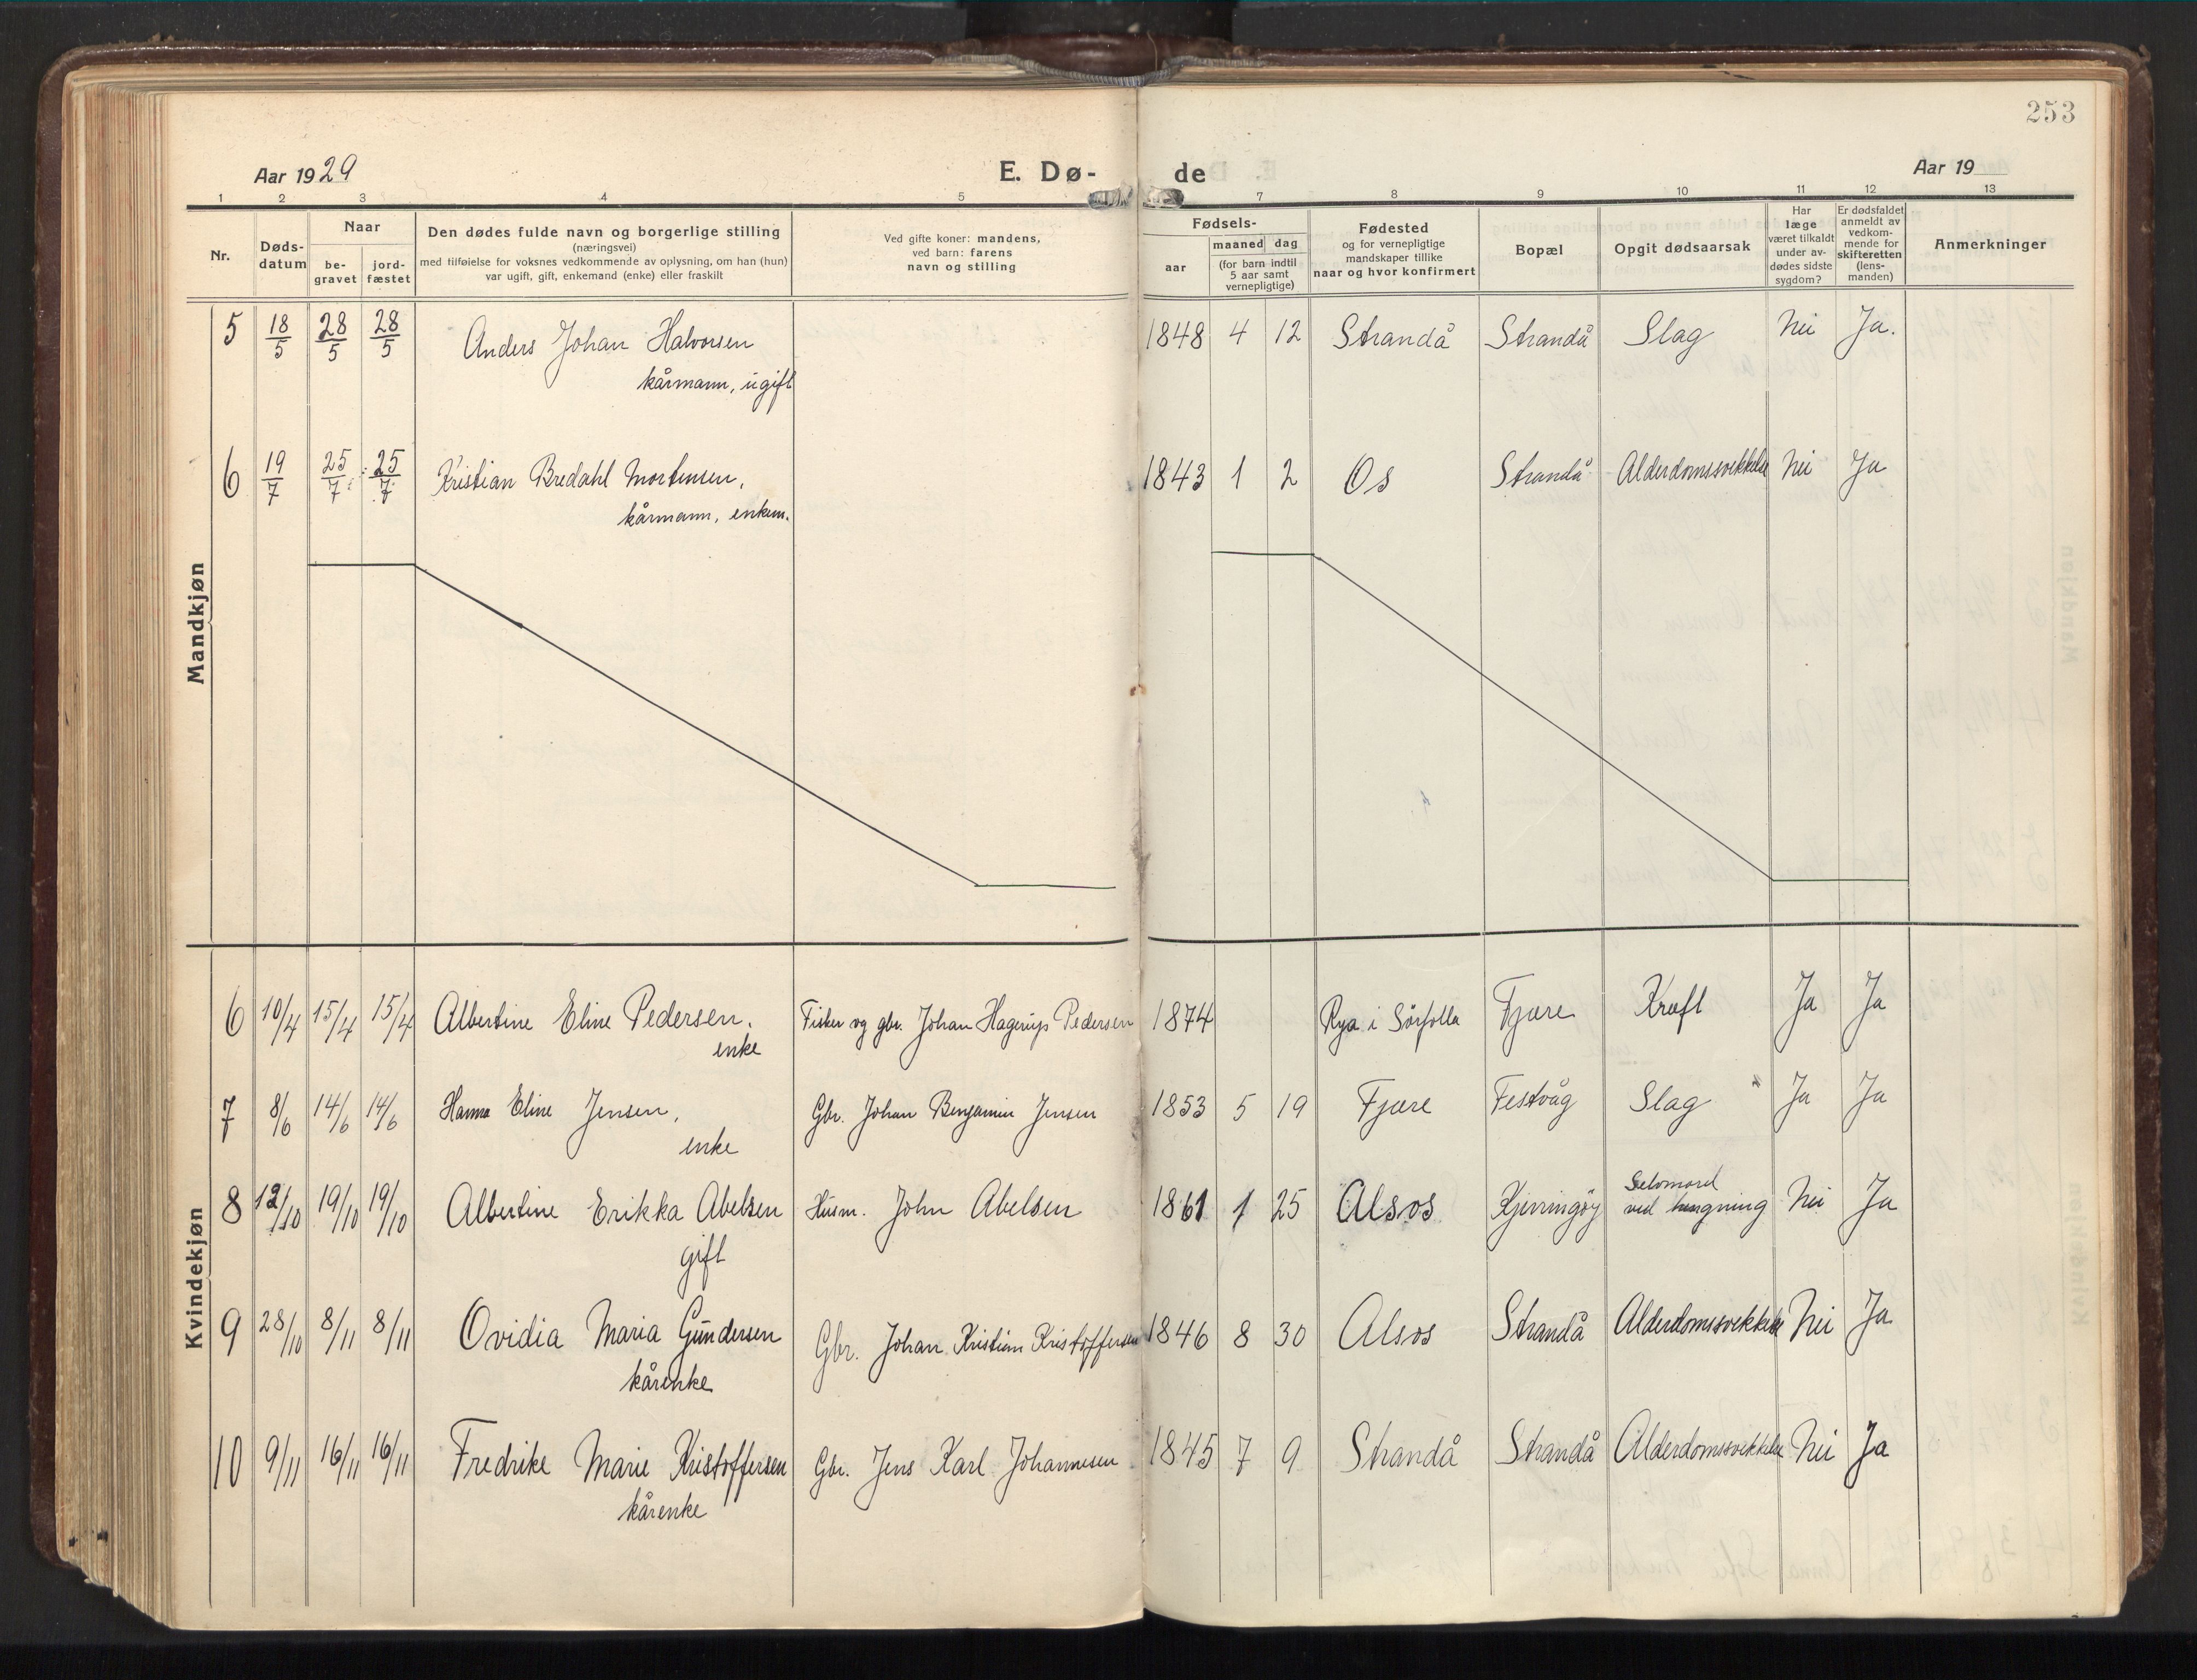 253
Aar 1929
E. Dø-
de
Aar 19
1 2 3 4 5 7 8 9 10 11 12 13
Nr.
Døds-
datum
Naar
be-
gravet
jord-
fæstet
Den dødes fulde navn og borgerlige stilling
(næringsvei)
med tilføielse for voksnes vedkommende av oplysning, om han (hun)
var ugift, gift, enkemand (enke) eller fraskilt
Ved gifte koner: mandens,
ved barn: farens
navn og stilling
Fødsels-
aar
maaned dag
(for barn indtil
5 aar samt
vernepligtige)
Fødested
og for vernepligtige
mandskaper tillike
naar og hvor konfirmert
Bopæl
Opgit dødsaarsak
Har
læge
været tilkaldt
under av-
dødes sidste
sygdom?
Er dødsfaldet
anmeldt av
vedkom-
mende for
skifteretten
(lens-
manden)
Anmerkninger
Mandkjøn
5 18/5 28/5 28/5 Anders Johan Halvorsen 1848 4 12 Strandå Strandå Slag Nei Ja.
kårmann, ugift
6 19/7 25/7 25/7 Kristian Bredahl Mortensen, 1843 1 2 Os Strandå Alderdomssvekkelse Nei Ja
kårmann, enkem.
Kvindekjøn
6 10/4 15/4 15/4 Albertine Eline Pedersen. Fisker og gbr. Johan Hagerup Pedersen 1874 Rya i Sørfolla Fjære Kreft Ja Ja
enke
7 8/6 14/6 14/6 Hanna Eline Jensen, Gbr. Johan Benjamin Jensen 1853 5 19 Fjære Festvåg Slag Ja Ja
enke
8 12/10 19/10 19/10 Albertine Erikka Abelsen Husm. John Abelsen 1861 1 25 Alsos Kjerringøy Selvmord
ved hengning Nei Ja
gift
9 28/10 8/11 8/11 Ovidia Maria Gundersen Gbr. Johan Kristian Kristoffersen 1846 8 30 Alsos Strandå Alderdomssvekkelse Nei Ja
kårenke
10 9/11 16/11 16/11 Fredrike Marie Kristoffersen Gbr. Jens Karl Johannesen 1845 7 9 Strandå Strandå Alderdomssvekkelse Nei Ja
kårenke